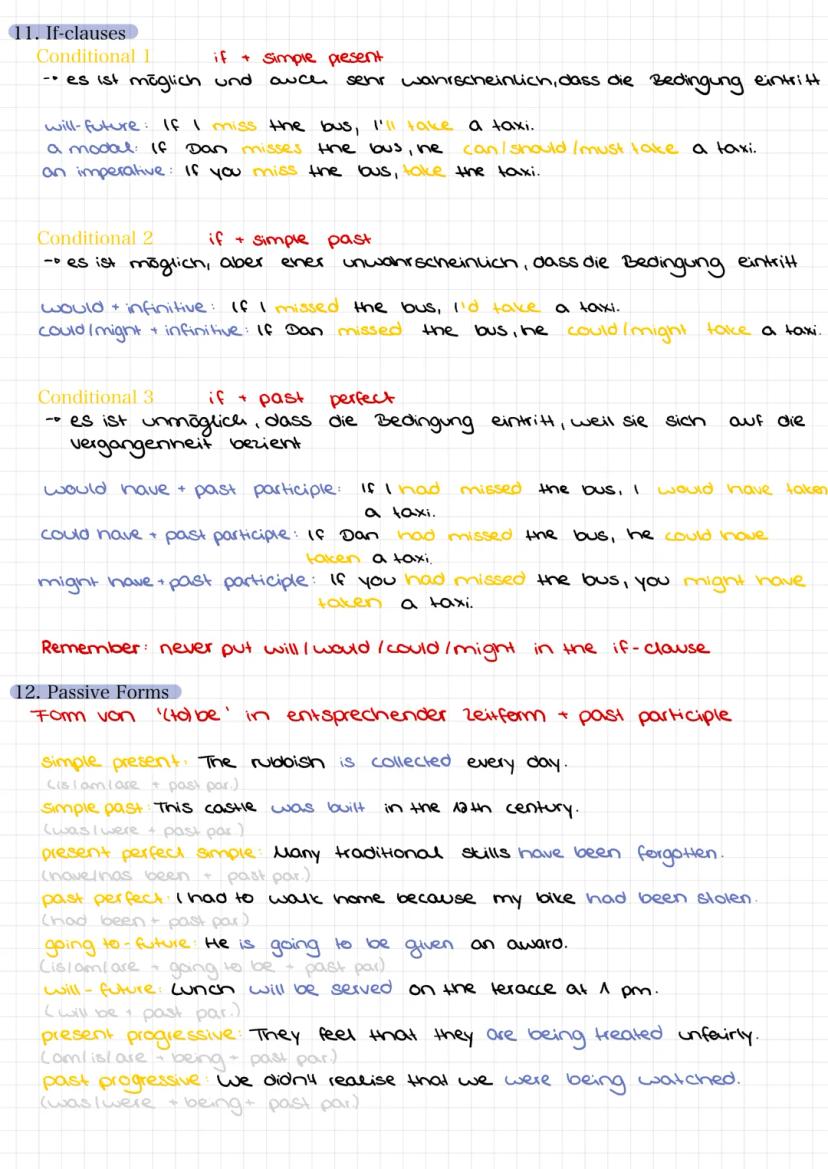 11. If-clauses
Conditional 1 if + simple present
→ es ist möglich und auch sehr wahrscheinlich, dass die Bedingung eintritt
will-future: If I miss the bus, I'll take a taxi.
a modal: If Dan misses the bus, he can/should/must take a taxi.
an imperative: If you miss the bus, take the taxi.
Conditional 2 if + simple past
→ es ist möglich, aber eher unwahrscheinlich, dass die Bedingung eintritt
would + infinitive: If I missed the bus, I'd take a taxi.
could/might + infinitive: If Dan missed the bus, he could/might take a taxi.
Conditional 3 if + past perfect
→ es ist unmöglich, dass die Bedingung eintritt, weil sie sich auf die
vergangenheit bezieht
would have + past participle: If I had missed the bus, I would have taken
a taxi.
could have + past participle: If Dan had missed the bus, he could have
taken a taxi.
might have + past participle: If you had missed the bus, you might have
taken a taxi.
Remember: never put will/would/could/might in the if-clause
12. Passive Forms
Form von '(to) be' in entsprechender Zeitform + past participle
simple present: The rubbish is collected every day.
(is/am/are + past par.)
simple past: This castle was built in the 12th century.
(was/were + past par.)
present perfect simple: Many traditional skills have been forgotten.
(have/has been + past par.)
past perfect: I had to walk home because my bike had been stolen.
(had been + past par)
going to-future: He is going to be given an award.
(is/am/are + going to be + past par)
will-future: Lunch will be served on the teracce at 1 pm.
(will be + past par.)
present progressive: They feel that they are being treated unfairly.
(am/is/are + being + past par.)
past progressive: We didn't realise that we were being watched.
(was/were + being + past par.)